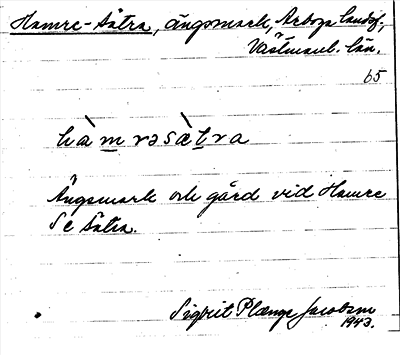 Hamre-Sätra, ängsmark, Arboga landsf.,
Västmanl. län.
65
hàm rəsàtra
Ängsmark och gård vid Hamre
Se Sätra.
Sigbrit Plænge Jacobson
1943.